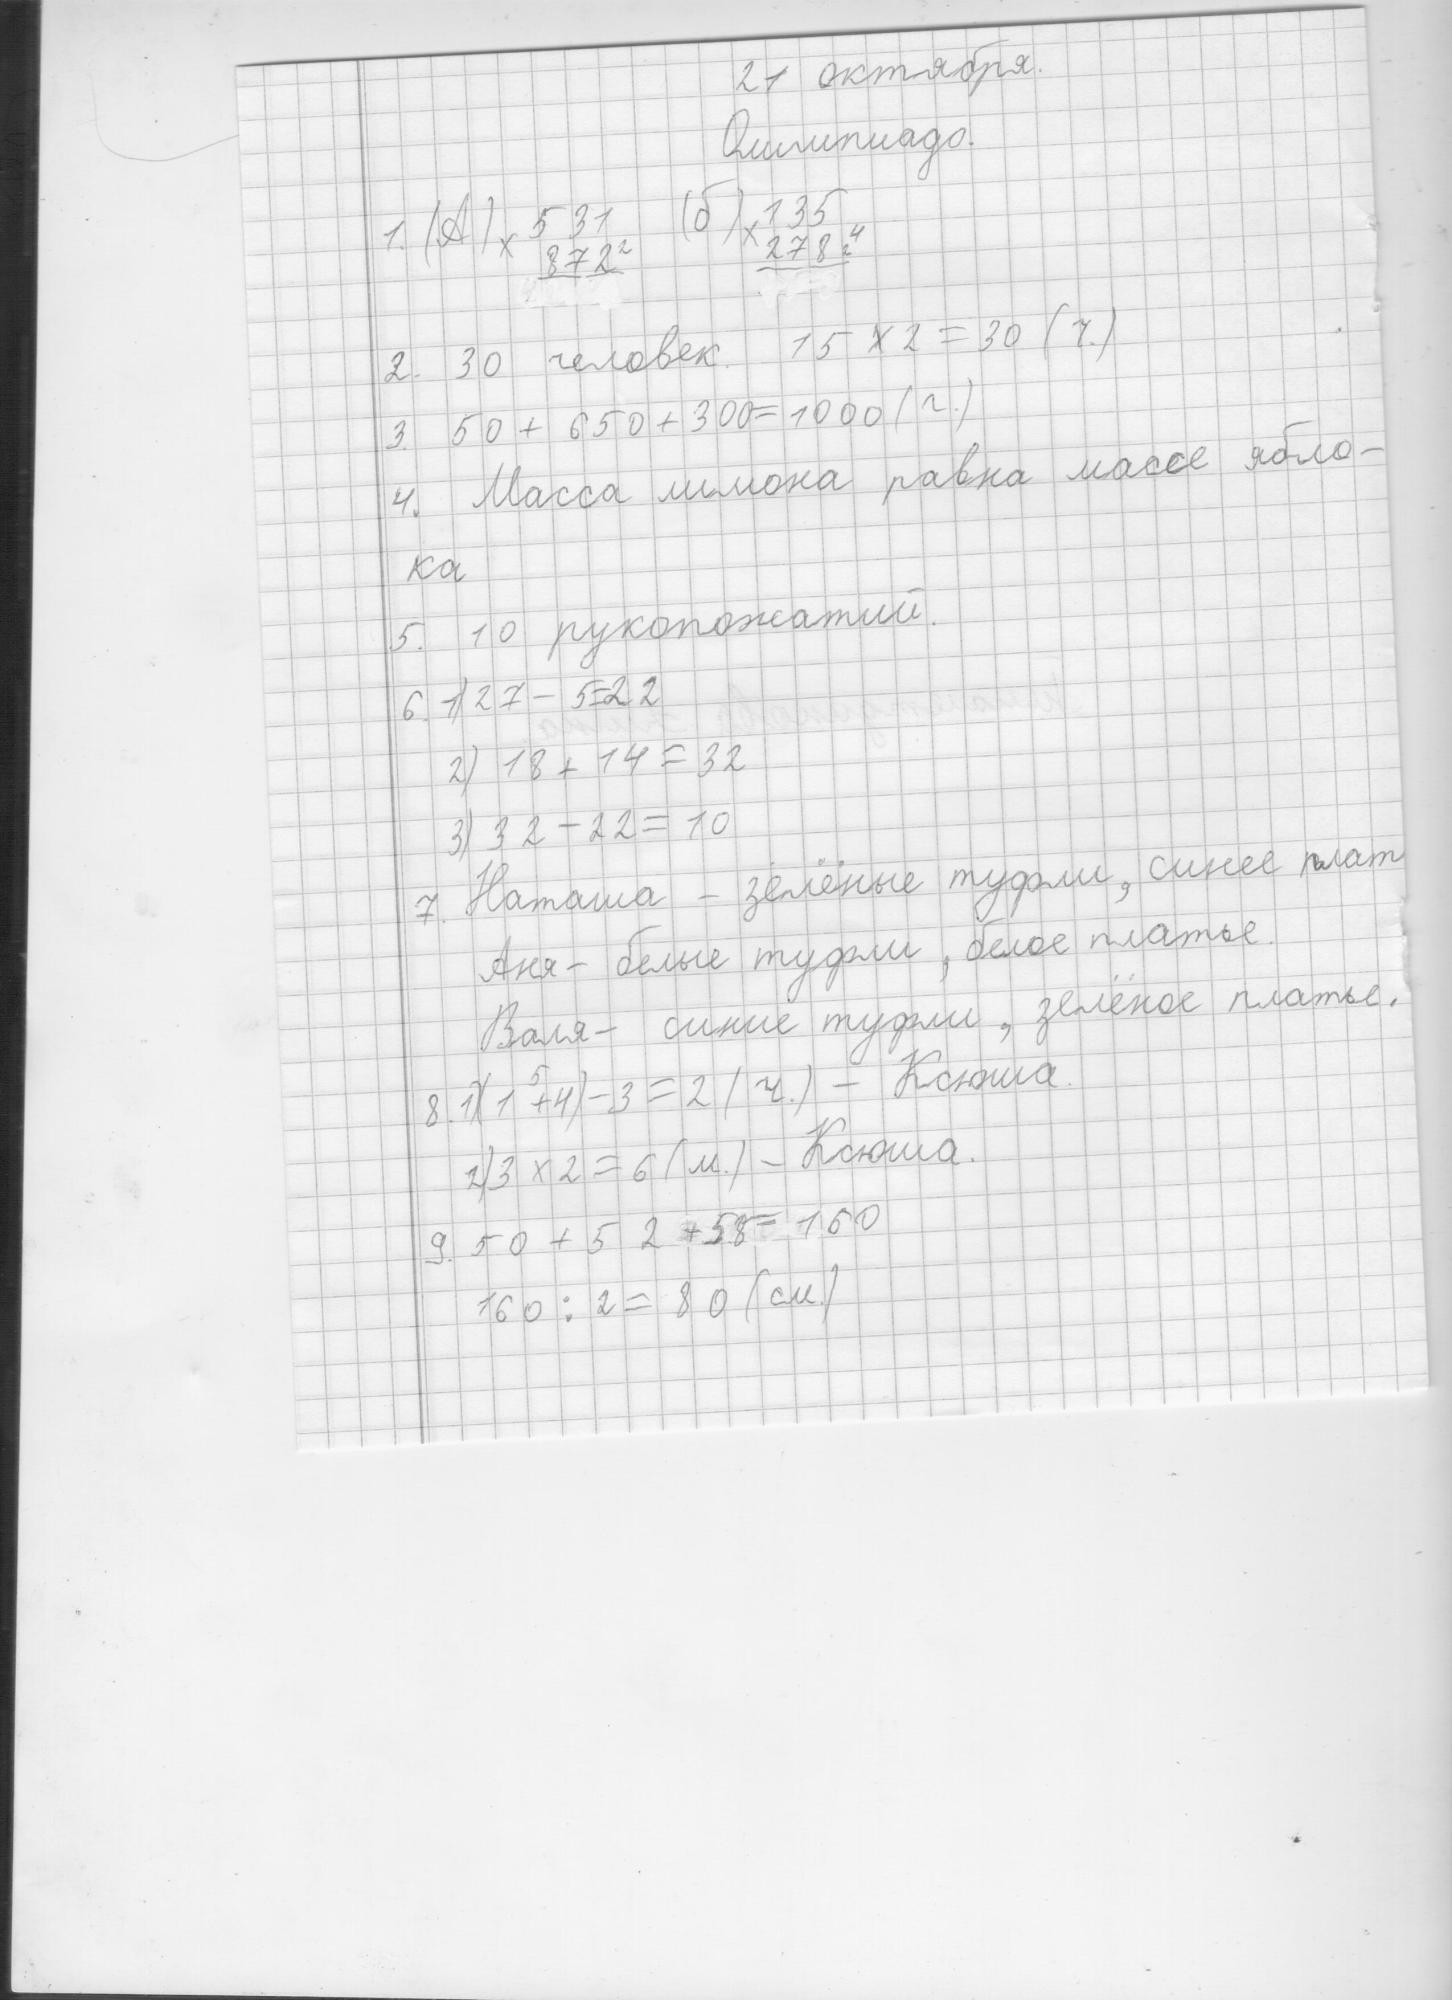 21 октября.
Олимпиадо.
1. (А) × 531 (б) × 135
872² 278 2 4
2. 30 человек. 15 × 2 = 30 (ч.)
3. 50 + 650 + 300 = 1000 (г.)
4. Масса лимона равна массе ябло-
ка
5. 10 рукопожатий.
6. 1) 27 - 5 = 22
2) 18 + 14 = 32
3) 32 - 22 = 10
7. Наташа - зелёные туфли, синее плат
Аня - белые туфли, белое платье.
Валя - синие туфли, зелёное платье.
5
8. 1) (1 + 4) - 3 = 2 (ч.) - Ксюша.
2) 3 × 2 = 6 (м.) - Ксюша.
9. 50 + 52 + 58 = 160
160 : 2 = 80 (см.)